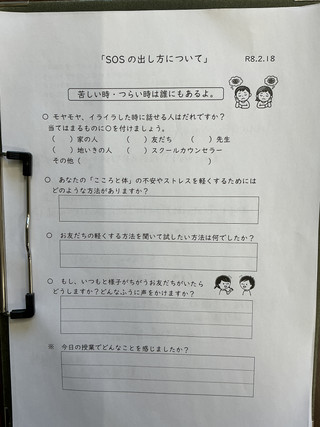 「SOSの出し方について」 R8.2.18
苦しい時・つらい時は誰にもあるよ。
○ モヤモヤ、イライラした時に話せる人はだれですか？
当てはまるものに○を付けましょう。
（　　）家の人　　（　　）友だち　　（　　）先生
（　　）地いきの人　（　　）スクールカウンセラー
その他（　　　　　　　　　　　　　　）
○ あなたの「こころと体」の不安やストレスを軽くするためには
どのような方法がありますか？
○ お友だちの軽くする方法を聞いて試したい方法は何でしたか？
○ もし、いつもと様子がちがうお友だちがいたら
どうしますか？どんなふうに声をかけますか？
※ 今日の授業でどんなことを感じましたか？